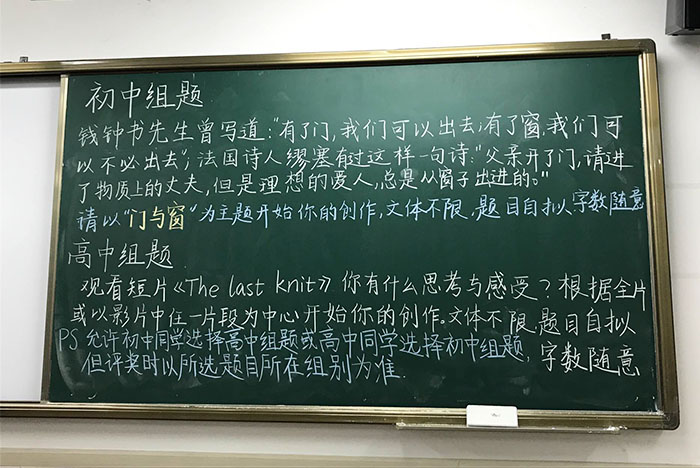 初中组题
钱钟书先生曾写道:"有了门,我们可以出去;有了窗,我们可
以不必出去";法国诗人缪塞有过这样一句诗:"父亲开了门,请进
了物质上的丈夫,但是理想的爱人,总是从窗子出进的。"
请以"门与窗"为主题开始你的创作,文体不限,题目自拟 字数随意
高中组题
观看短片《The last knit》你有什么思考与感受?根据全片
或以影片中任一片段为中心开始你的创作。文体不限.题目自拟
PS 允许初中同学选择高中组题或高中同学选择初中组题,
但评奖时以所选题目所在组别为准. 字数随意